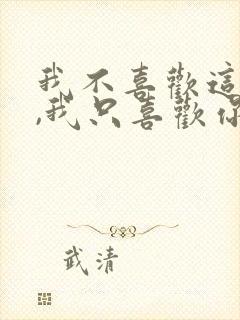 我不喜歡這
,我只喜歡你
武清